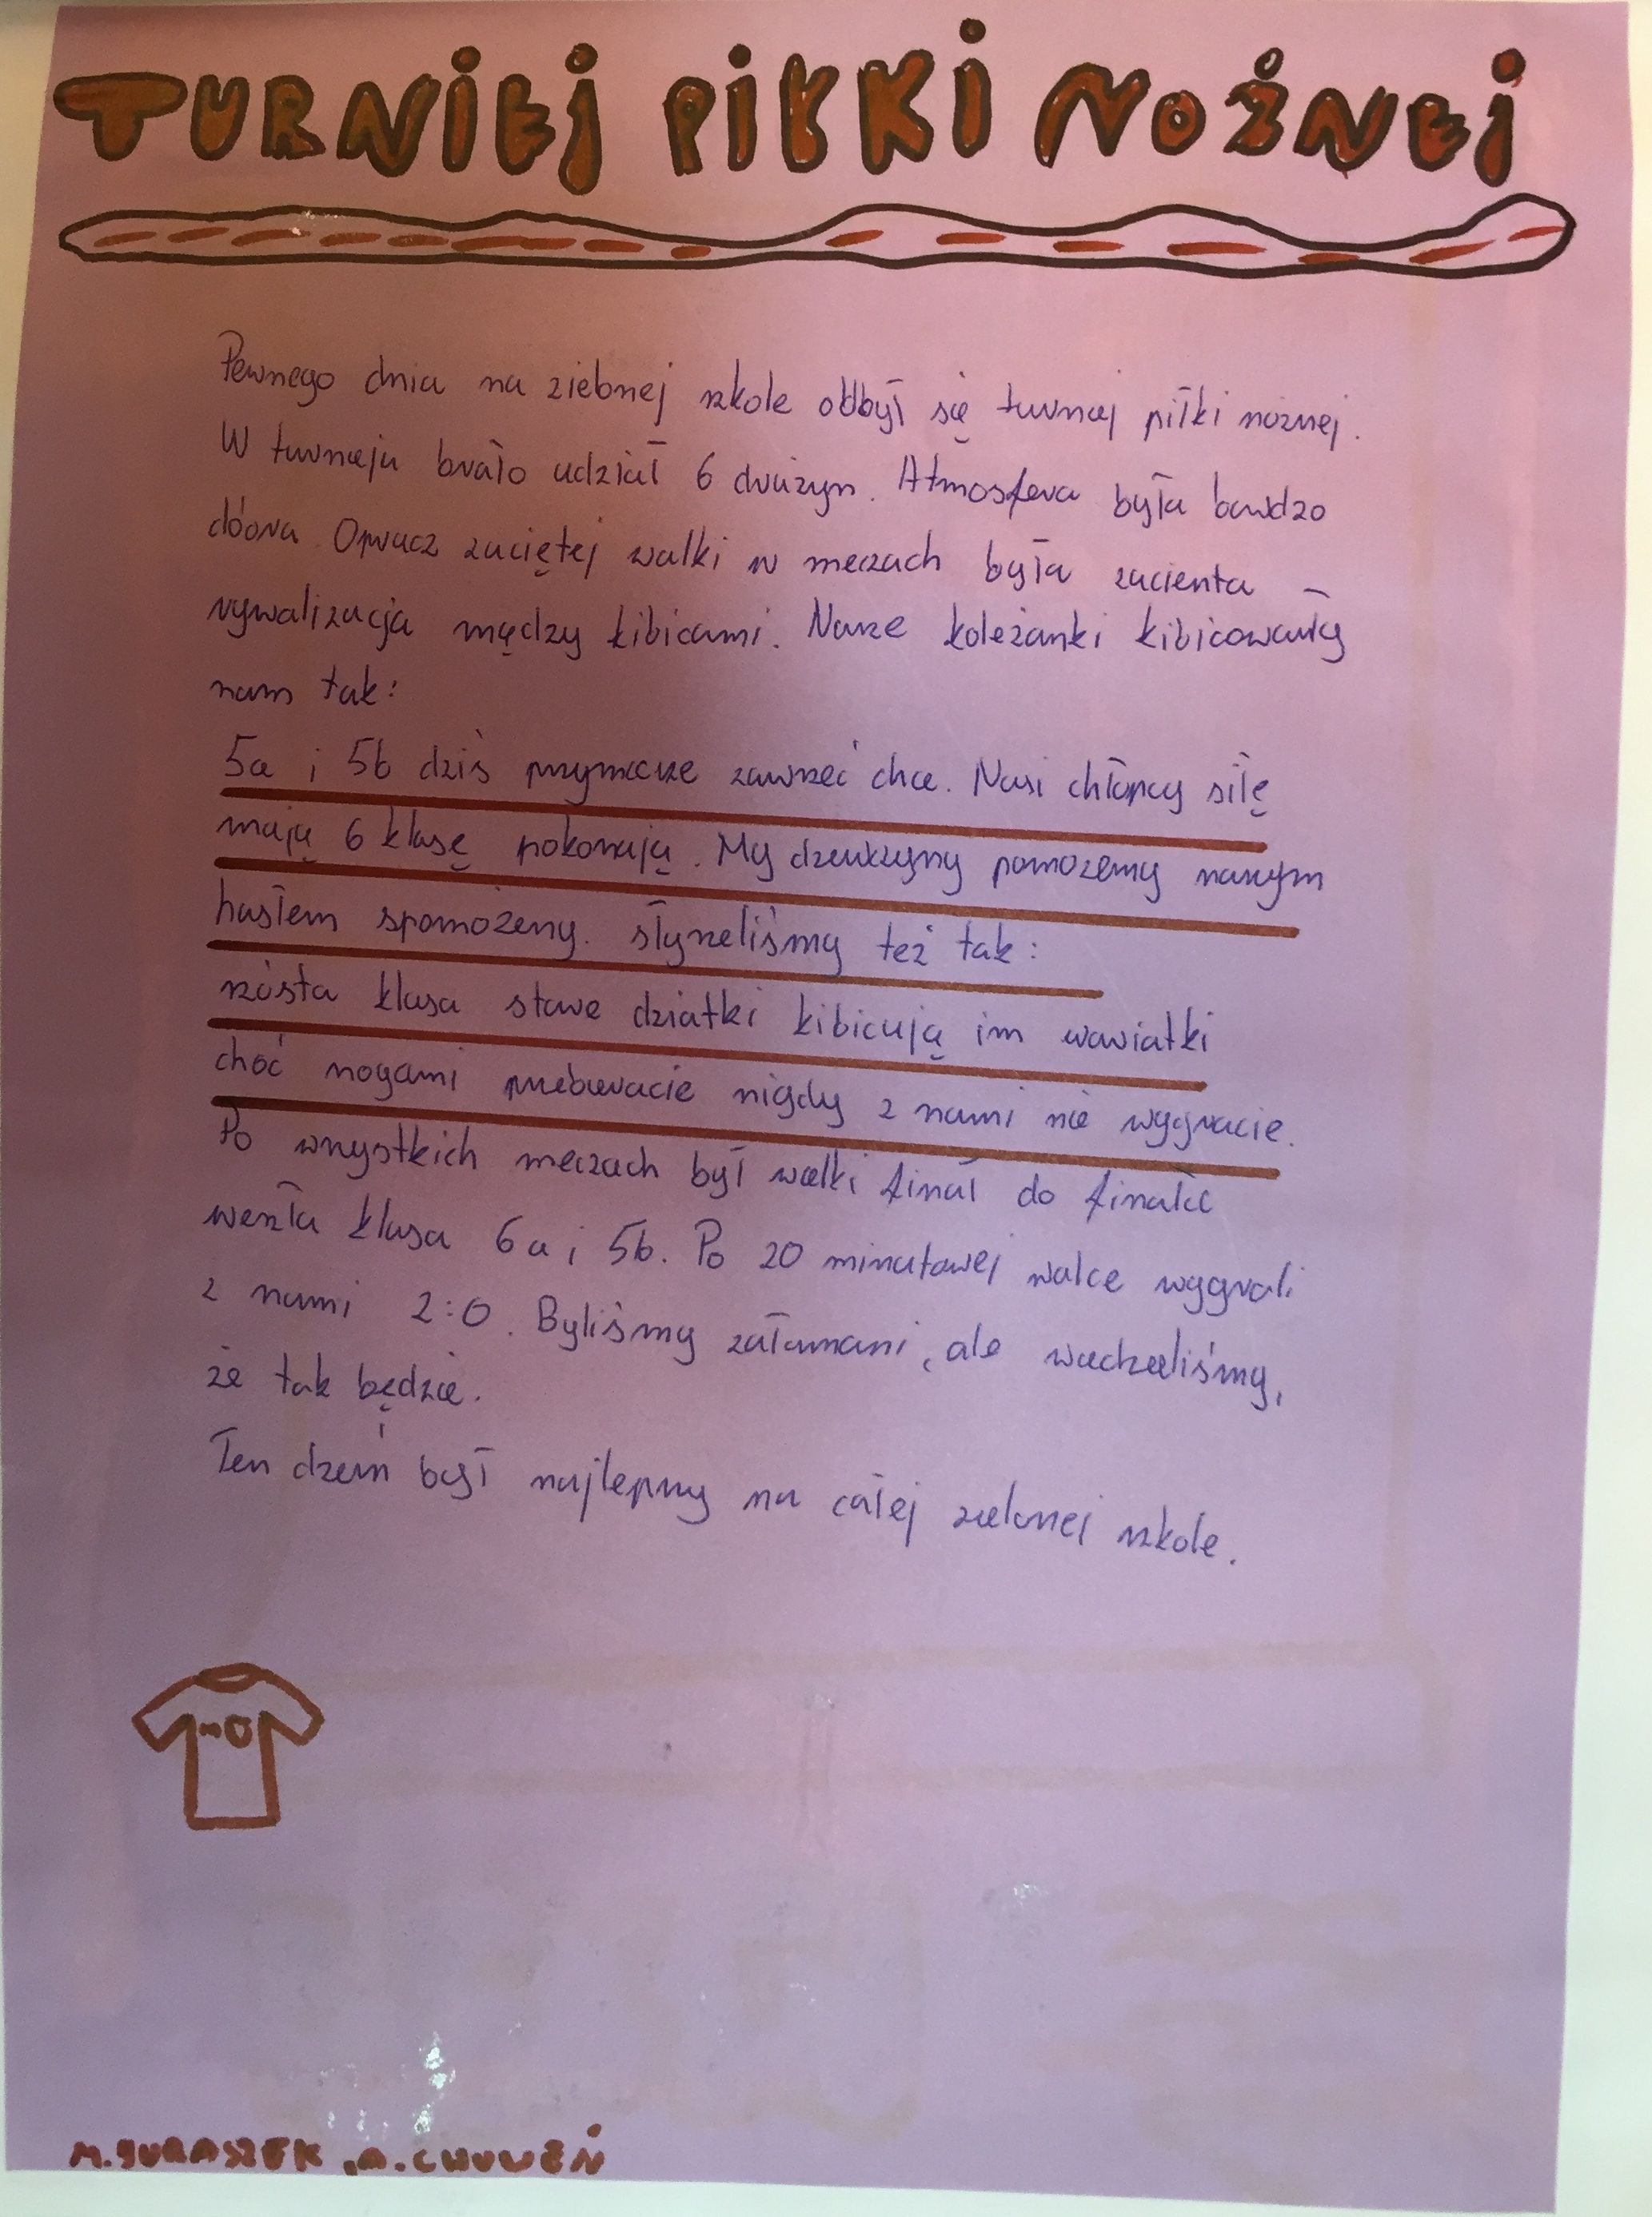 TURNIEJ PIŁKI NOŻNEJ
Pewnego dnia na zielonej szkole odbył się turniej piłki nożnej.
W turnieju brało udział 6 drużyn. Atmosfera była bardzo
dobra. Oprucz zaciętej walki w meczach była zacienta
rywalizacja między kibicami. Nasze koleżanki kibicowały
nam tak:
5a i 5b dziś przymierze zawrzeć chce. Nasi chłopcy siłę
mają 6 klasę pokonają. My dziewczyny pomożemy naszym
hasłem spomożemy. słyszeliśmy też tak:
szósta klasa stare dziatki kibicują im wariatki
choć nogami przebieracie nigdy z nami nie wygracie.
Po wszystkich meczach był wielki finał do finału
weszła klasa 6a i 5b. Po 20 minutowej walce wygrali
z nami 2:0. Byliśmy załamani, ale wiedzieliśmy,
że tak będzie.
Ten dzień był najlepszy na całej zielonej szkole.
M.JURASZEK, A.CHUWEŃ